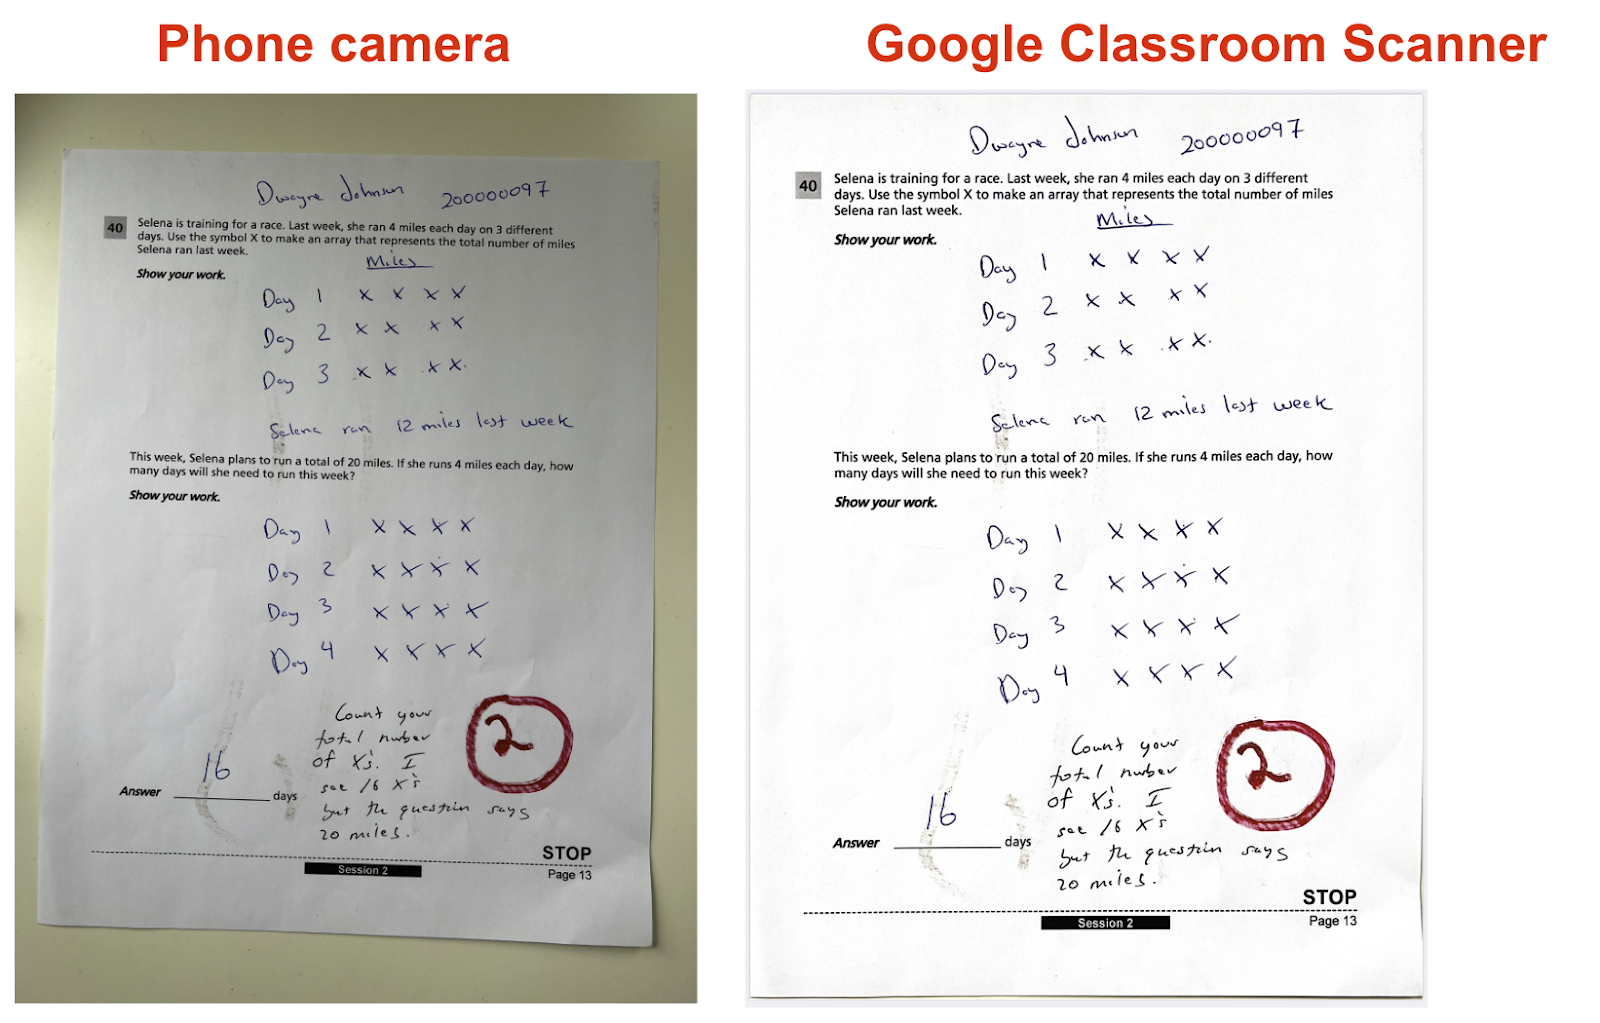 Phone camera
Dwayne Johnson 200000097
40 Selena is training for a race. Last week, she ran 4 miles each day on 3 different
days. Use the symbol X to make an array that represents the total number of miles
Selena ran last week.
Miles
Show your work.
Day 1 X X X X
Day 2 X X X X
Day 3 X X X X
Selena ran 12 miles last week
This week, Selena plans to run a total of 20 miles. If she runs 4 miles each day, how
many days will she need to run this week?
Show your work.
Day 1 X X X X
Day 2 X X X X
Day 3 X X X X
Day 4 X X X X
Count your
total number
of X's. I
see 16 X's
but the question says
20 miles.
2
Answer 16 days
STOP
Session 2
Page 13
Google Classroom Scanner
Dwayne Johnson 200000097
40 Selena is training for a race. Last week, she ran 4 miles each day on 3 different
days. Use the symbol X to make an array that represents the total number of miles
Selena ran last week.
Miles
Show your work.
Day 1 X X X X
Day 2 X X X X
Day 3 X X X X
Selena ran 12 miles last week
This week, Selena plans to run a total of 20 miles. If she runs 4 miles each day, how
many days will she need to run this week?
Show your work.
Day 1 X X X X
Day 2 X X X X
Day 3 X X X X
Day 4 X X X X
Count your
total number
of X's. I
see 16 X's
but the question says
20 miles.
2
Answer 16 days
STOP
Session 2
Page 13